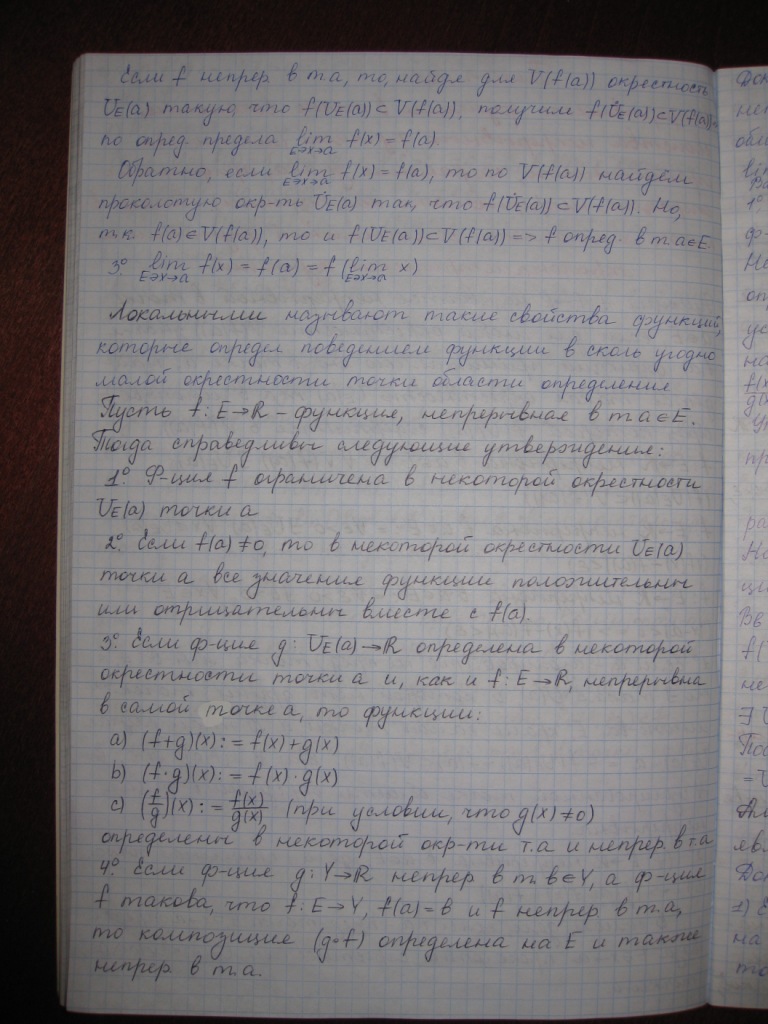 Если f непрер. в т.а, то, найдя для V(f(a)) окрестность
U_E(a) такую, что f(U_E(a))⊂V(f(a)), получим f(U̇_E(a))⊂V(f(a))
по опред. предела lim_{E∋x→a} f(x) = f(a).
Обратно, если lim_{E∋x→a} f(x) = f(a), то по V(f(a)) найдём
проколотую окр-ть U̇_E(a) так, что f(U̇_E(a))⊂V(f(a)). Но,
т.к. f(a)∈V(f(a)), то и f(U_E(a))⊂V(f(a)) => f опред. в т. a∈E.
3° lim_{E∋x→a} f(x) = f(a) = f(lim_{E∋x→a} x)
Локальными называют такие свойства функций,
которые определ поведением функции в сколь угодно
малой окрестности точки области определения
Пусть f: E→R – функция, непрерывная в т a∈E.
Тогда справедливы следующие утверждения:
1° Ф-ция f ограничена в некоторой окрестности
U_E(a) точки а
2° Если f(a)≠0, то в некоторой окрестности U_E(a)
точки а все значения функции положительны
или отрицательны вместе с f(a).
3° Если ф-ция g: U_E(a)→R определена в некоторой
окрестности точки а и, как и f: E→R, непрерывна
в самой точке а, то функции:
a) (f+g)(x): = f(x)+g(x)
b) (f·g)(x): = f(x)·g(x)
c) (f/g)(x): = f(x)/g(x) (при условии, что g(x)≠0)
определены в некоторой окр-ти т.а и непрер. в т.а
4° Если ф-ция g: Y→R непрер в т. в∈Y, а ф-ция
f такова, что f: E→Y, f(a)=в и f непрер. в т.а,
то композиция (g∘f) определена на E и также
непрер. в т.а.